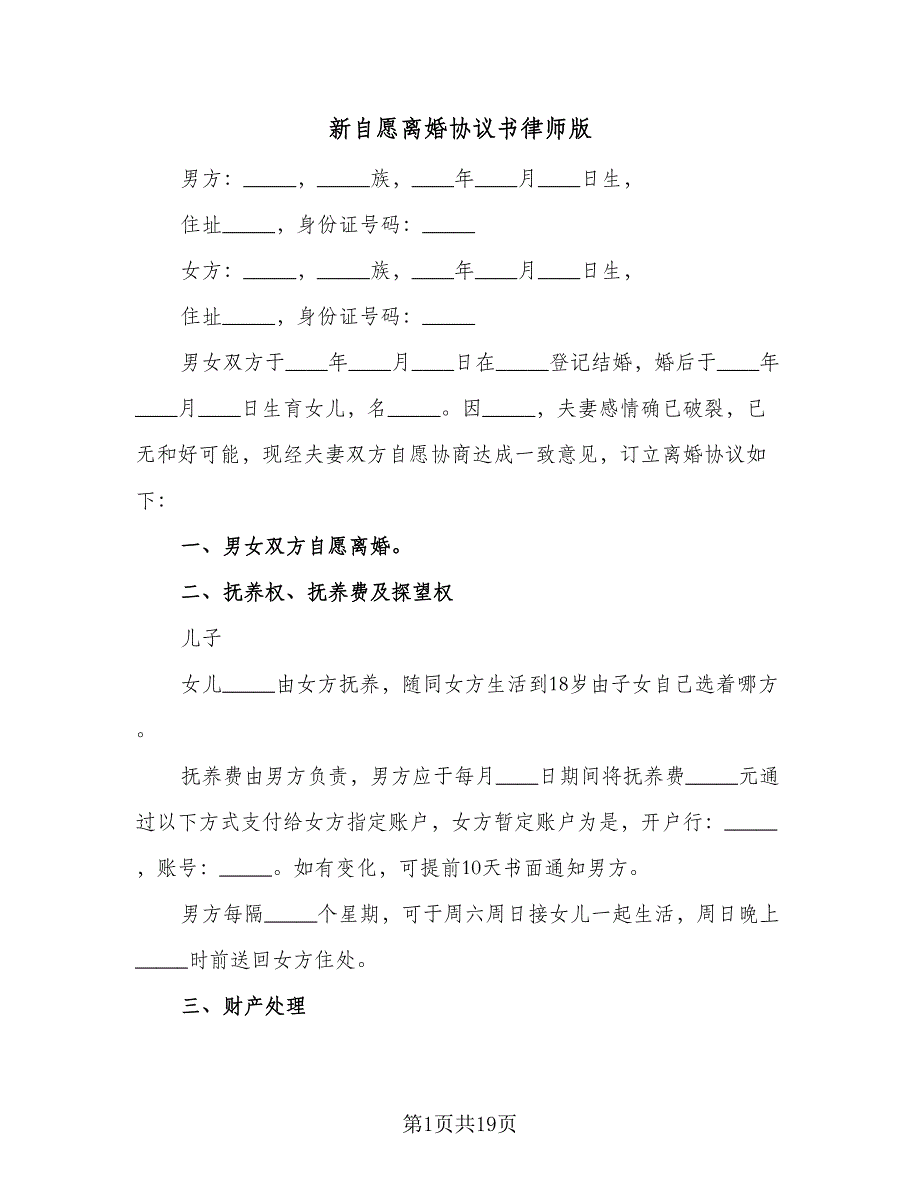 新自愿离婚协议书律师版
男方：_____，_____族，____年____月____日生，
住址_____，身份证号码：_____
女方：_____，_____族，____年____月____日生，
住址_____，身份证号码：_____
男女双方于____年____月____日在_____登记结婚，婚后于____年
____月____日生育女儿，名_____。因_____，夫妻感情确已破裂，已
无和好可能，现经夫妻双方自愿协商达成一致意见，订立离婚协议如
下：
一、男女双方自愿离婚。
二、抚养权、抚养费及探望权
儿子
女儿_____由女方抚养，随同女方生活到18岁由子女自己选着哪方
。
抚养费由男方负责，男方应于每月____日期间将抚养费_____元通
过以下方式支付给女方指定账户，女方暂定账户为是，开户行：_____
，账号：_____。如有变化，可提前10天书面通知男方。
男方每隔_____个星期，可于周六周日接女儿一起生活，周日晚上
_____时前送回女方住处。
三、财产处理
第1页共19页